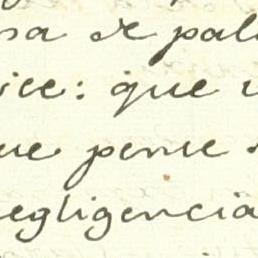 sa de pal
ice: que
ue pense
egligencia